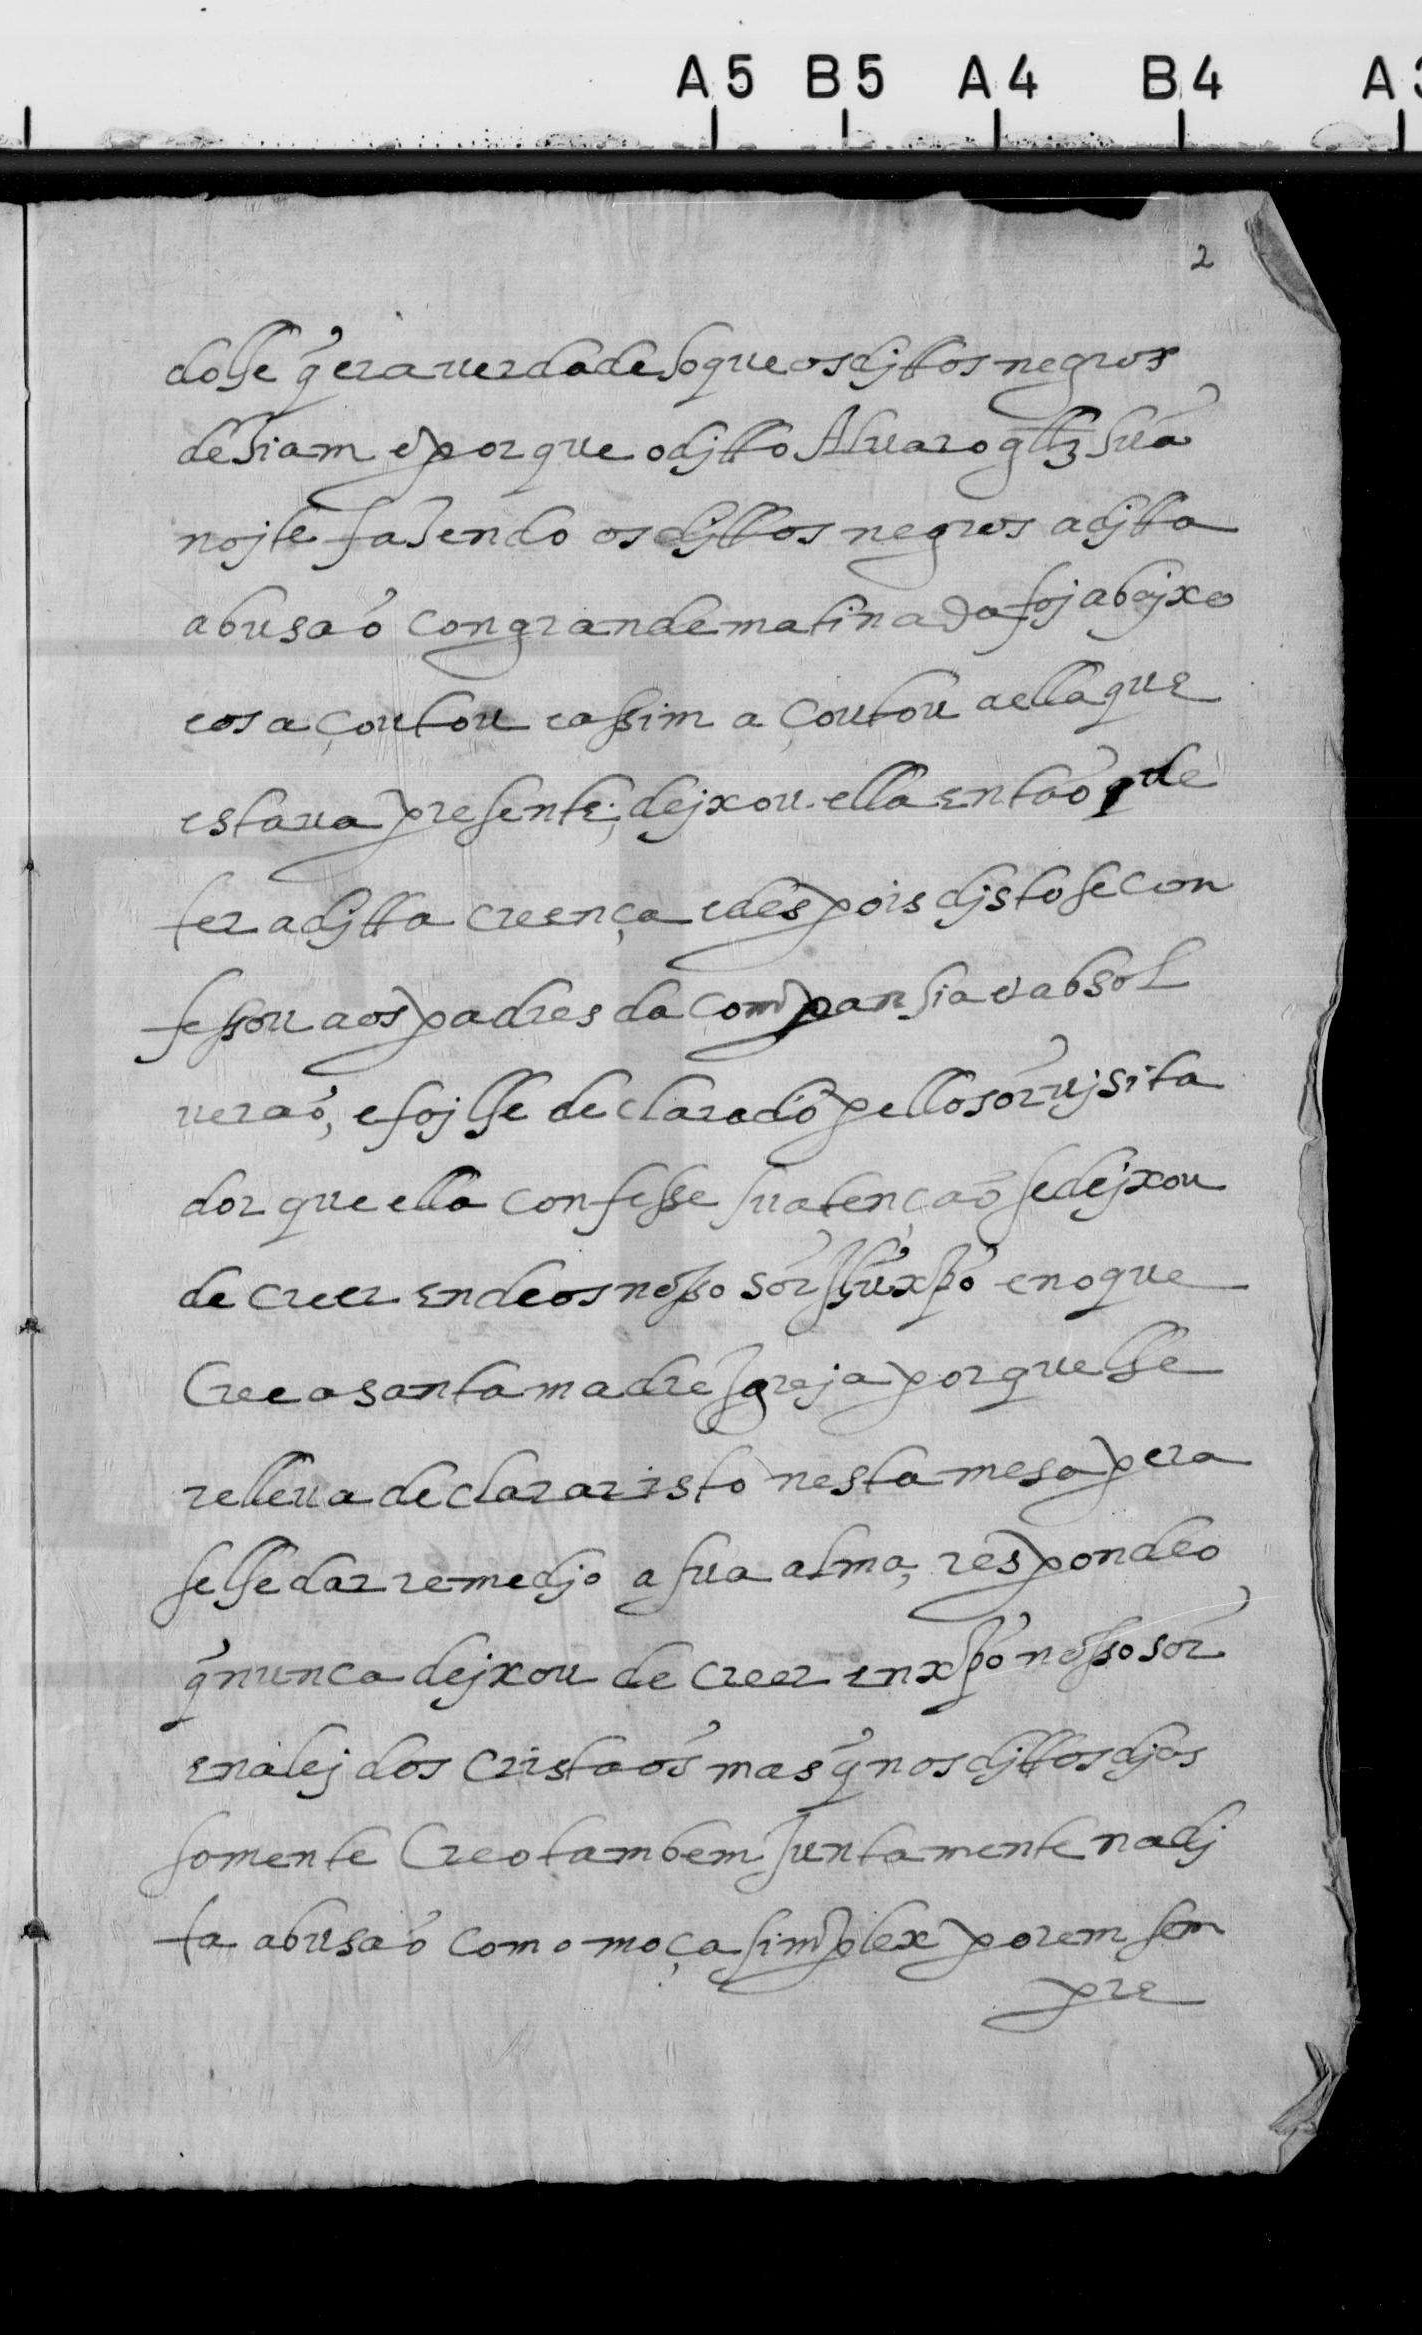 A5 B5 A4 B4 A3
2
dolhe q̃ era uerdade ho que os djttos negros
dehiam e por que o djtto Alvaro glz hũa
nojte fazendo os djttos negros a djtta
abusaõ con grande matinada foj abajxo
e os açoutou e assim açoutou a ella que
estaua presente, dejxou ella entaõ de
ter a djtta crença e despois djsto se con
fessou aos padres da companhia e absol
ueraõ, e foj lhe declarado pello sõr ujsita
dor que ella confesse sua tençaõ se dejxou
de creer en deos nosso sõr Jhũ xp̃o e no que
Cree a santa madre Igreja por que lhe
relleua declarar isto nesta mesa pera
se lhe dar remedjo a sua alma, respondeo
q̃ nunca dejxou de creer en xp̃o nosso sõr
e na lej dos cristaõs mas q̃ nos djttos djas
somente Creo tambem Juntamente na dj
ta abusaõ como moça simplex porem sem
pre